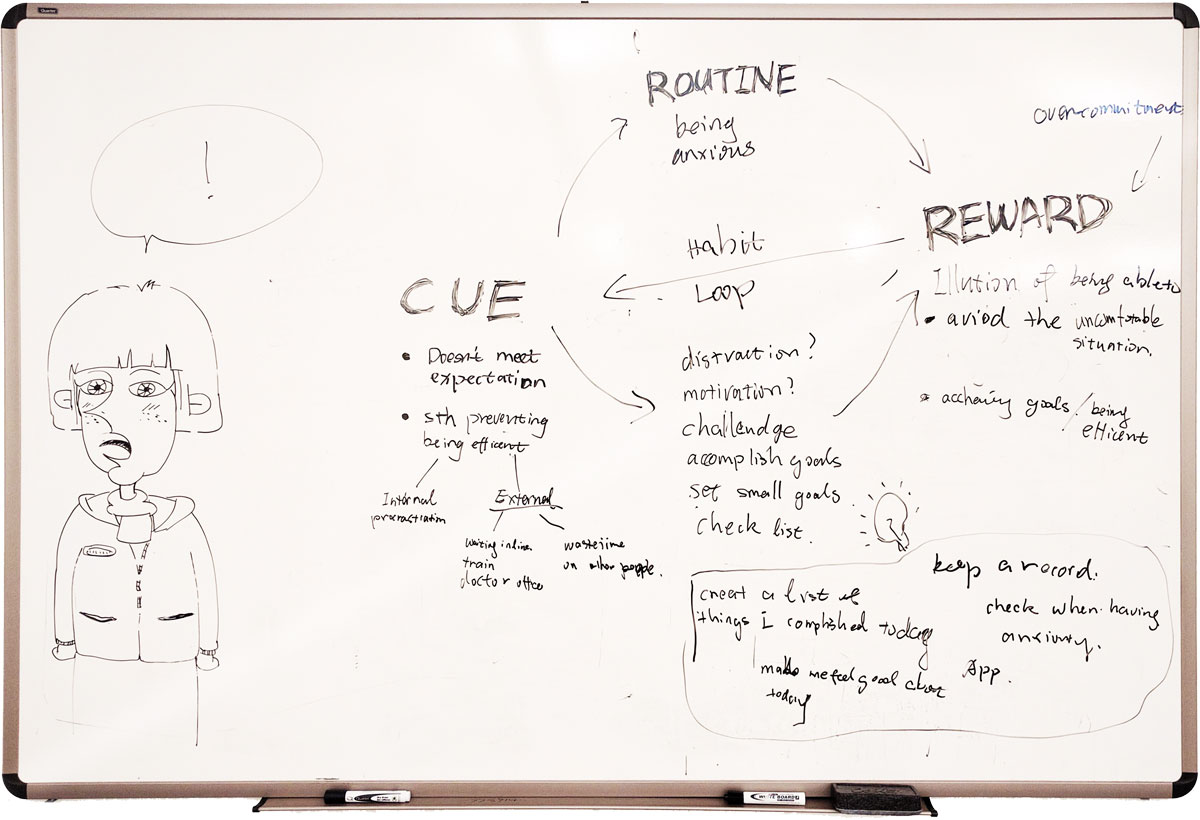 Quartet
!
ROUTINE
being
anxious
overcommitment
Habit
Loop
REWARD
Illution of being able to
• aviod the uncomfortable
situation.
• acheiving goals / being
efficent
CUE
• Doesn't meet
expectation
• sth preventing
being efficent
Internal
External
waiting in line
train
doctor office
waste time
on other people.
distraction?
motivation?
challendge
accomplish goals
set small goals
check list.
keep a record.
check when having
anxiuty.
App.
creat a list of
things I complished today
make me feel good about
today